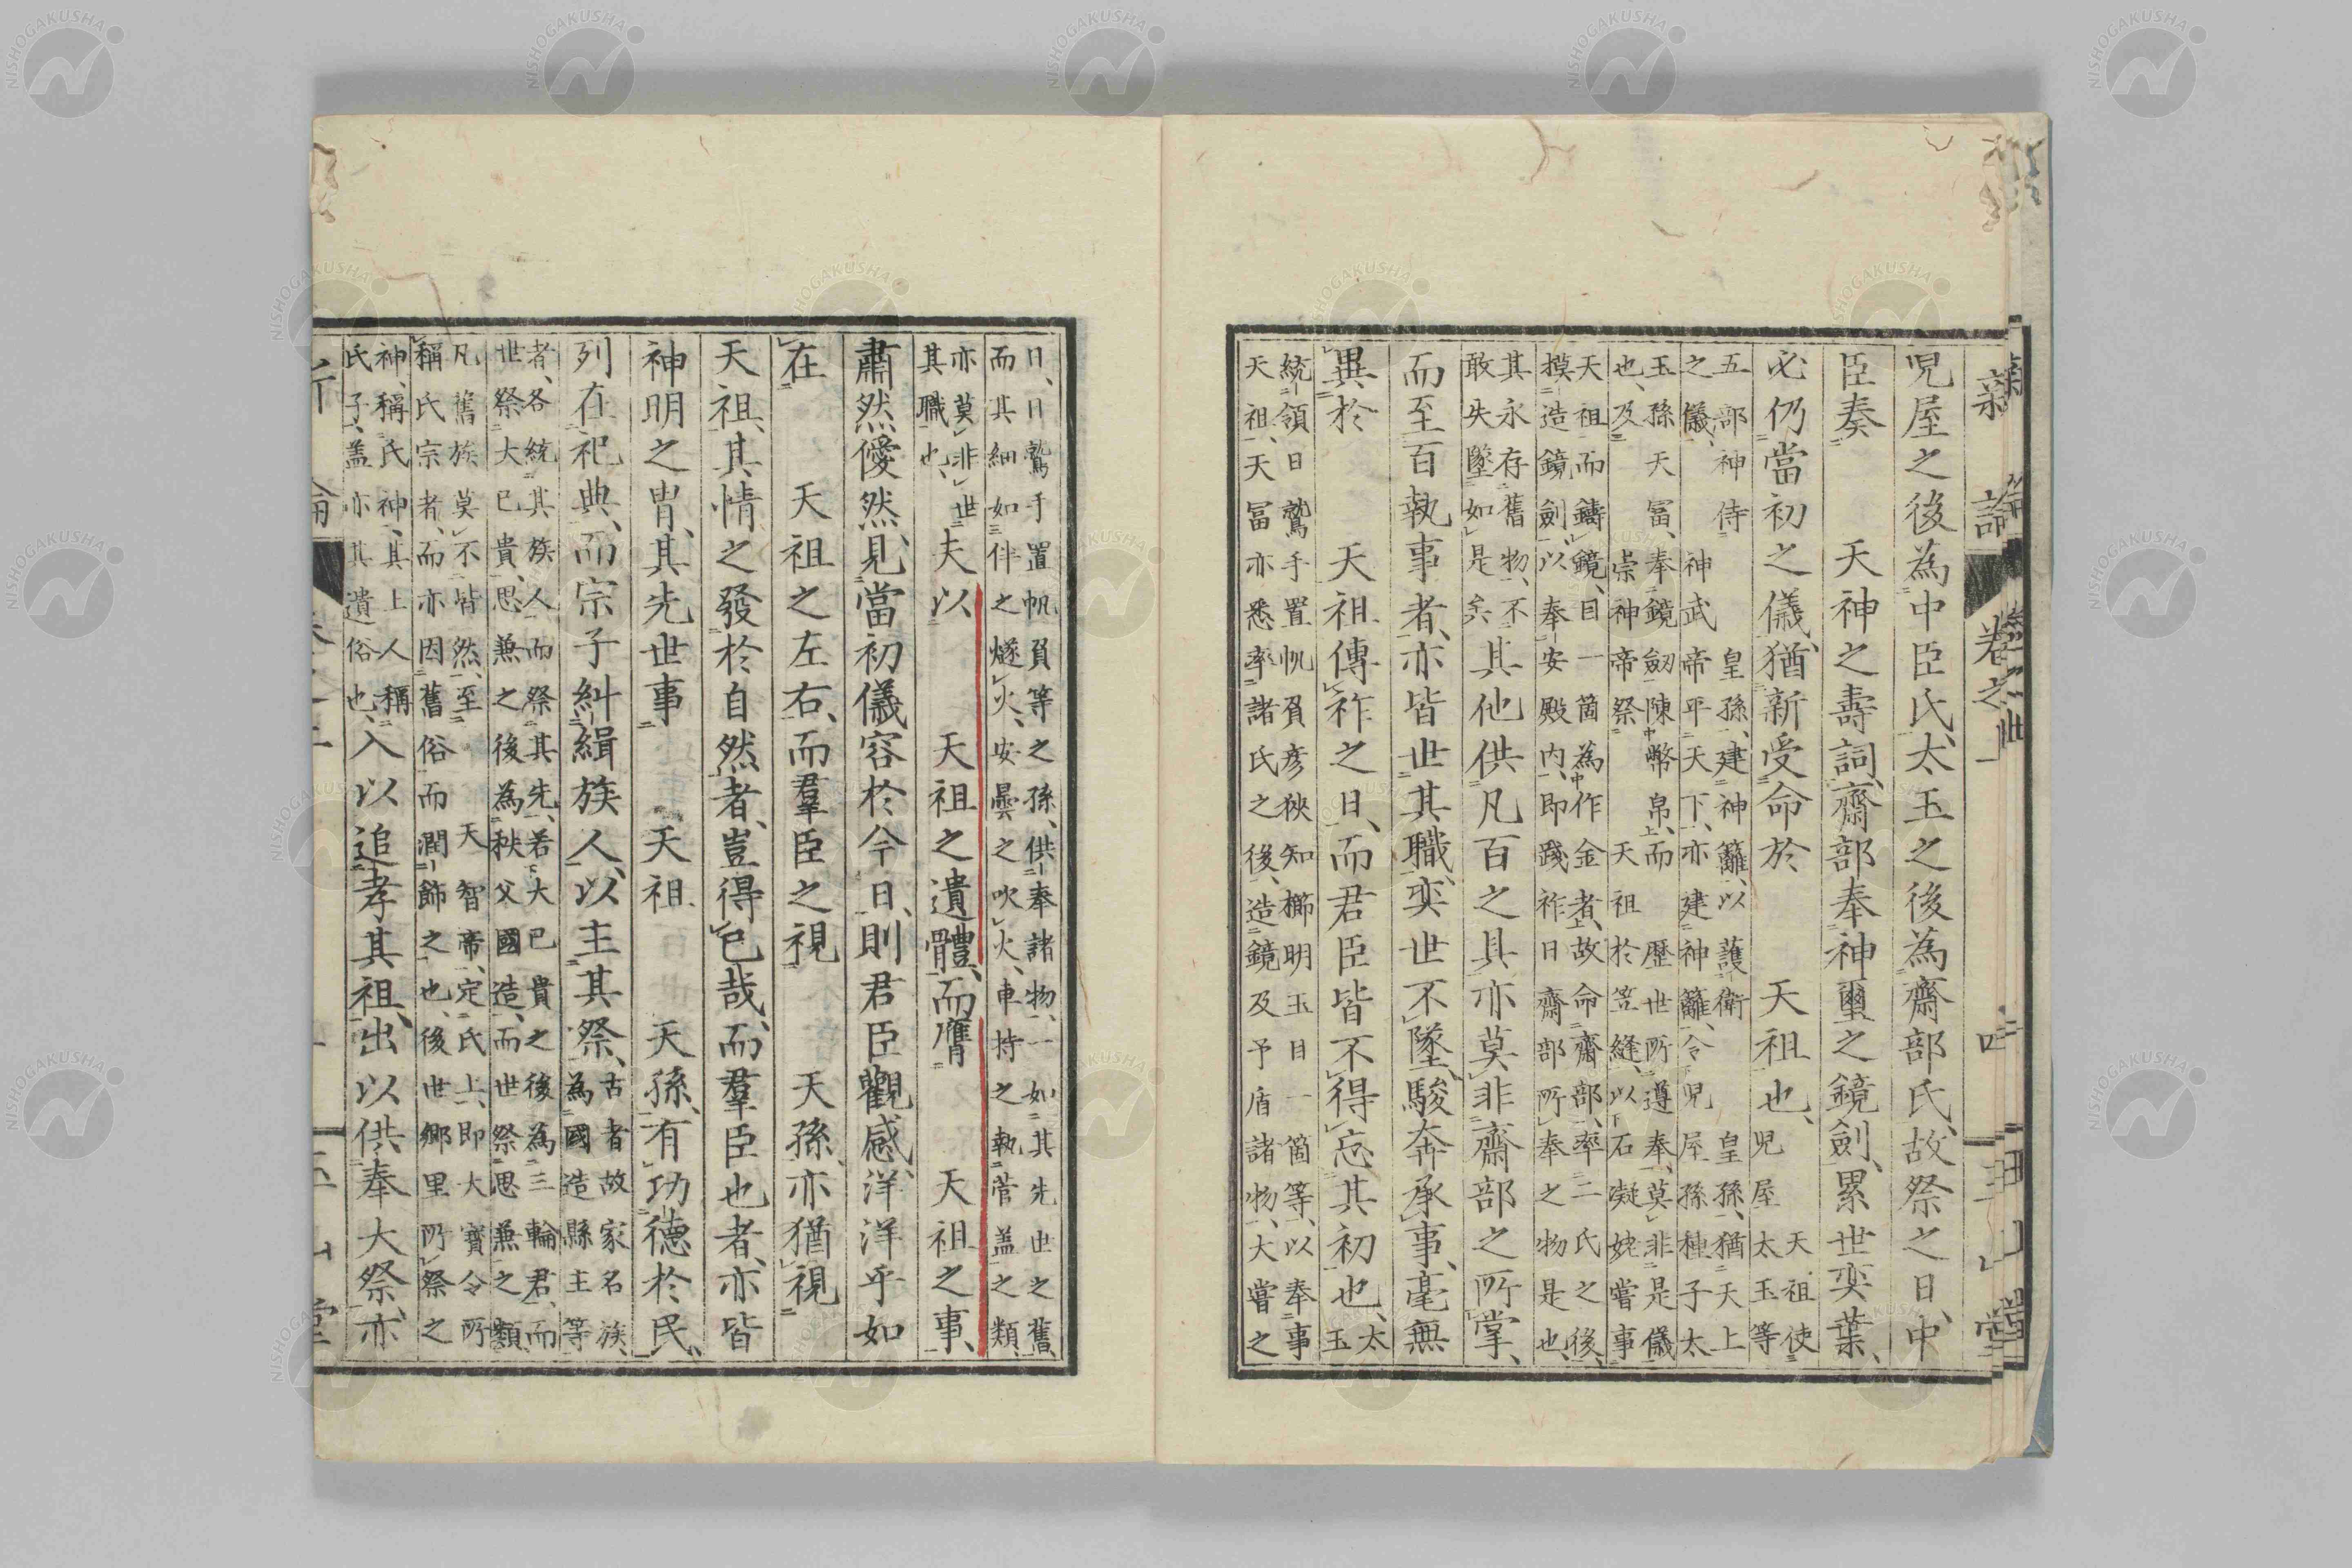 新論 卷之上 四 玉山堂
兒屋之後為中臣氏、太玉之後為齋部氏、故祭之日、中
臣奏 天神之壽詞、齋部奉神璽之鏡劍、累世奕葉、
必仍當初之儀、猶新受命於 天祖也、兒屋太玉等
天祖使
五部神侍 皇孫、建神籬、以護衛 皇孫、猶天上
之儀、神武帝平天下、亦建神籬、令兒屋孫種子太
玉孫天冨、奉鏡劔陳幣帛、而歷世所遵奉、莫非是儀
也、及崇神帝祭 天祖於笠縫、以石凝姥
嘗事
天祖而鑄鏡、目一箇為作金者、故命齋部、率二氏之後、
摸造鏡劍、以奉安殿内、即踐祚日齋部所奉之物是也、
其永存舊物、不
敢失墜如是矣
其他供凡百之具、亦莫非齋部之所掌、
而至百執事者、亦皆世其職、奕世不墜、駿奔承事、毫無
異於 天祖傳祚之日、而君臣皆不得忘其初也、
太
玉
統領日鷲手置帆負彦狹知櫛明玉目一箇等、以奉事
天祖、天冨亦悉率諸氏之後、造鏡及予盾諸物、大嘗之
日、日鷲手置帆負等之孫、供奉諸物、一如其先世之舊、
而其細如伴之燧火、安曇之吹火、車持之執菅盖之類
亦莫非世
其職也、
夫以 天祖之遺體、而膺 天祖之事、
肅然僾然、見當初儀容於今日、則君臣觀感、洋洋乎如
在 天祖之左右、而羣臣之視 天孫、亦猶視
天祖、其情之發於自然者、豈得已哉、而羣臣也者、亦皆
神明之冑、其先世事 天祖 天孫、有功德於民、
列在祀典、而宗子糾緝族人、以主其祭、
古者故家名族、
為國造縣主等
者、各統其族人、而祭其先、若大已貴之後為三輪君、而
世祭大已貴、思兼之後為秩父國造、而世祭思兼之類、
凡舊族莫不皆然、至 天智帝、定氏上、即大寶令所
稱氏宗者、而亦因舊俗而潤飾之也、後世鄉里所祭之
神、稱氏神、其上人稱
氏子、盖亦其遺俗也、
入以追孝其祖、出以供奉大祭、亦